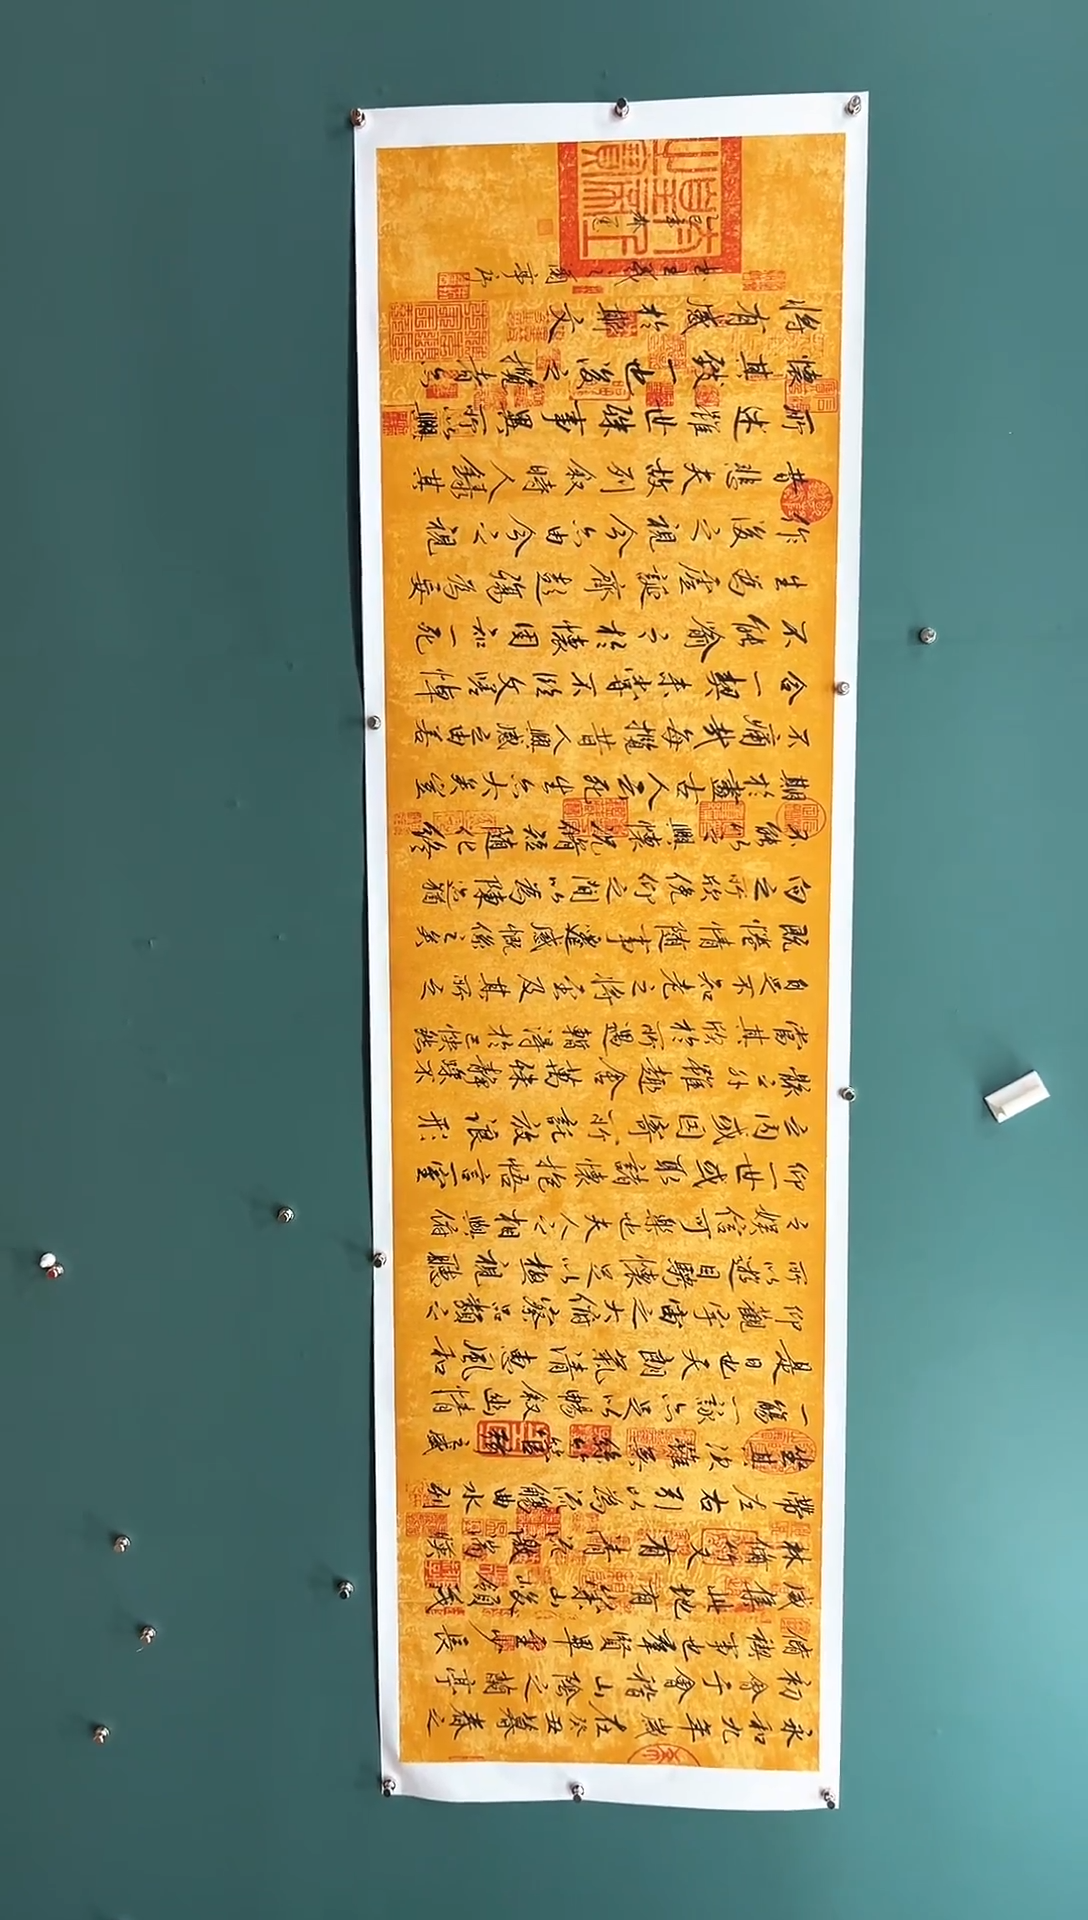 永和九年歲在癸丑暮春之
初會于會稽山陰之蘭亭
脩禊事也羣賢畢至少長
咸集此地有崇山峻領茂
林脩竹又有清流激湍暎
帶左右引以為流觴曲水列
坐其次雖無絲竹管弦之盛
一觴一詠亦足以暢敘幽情
是日也天朗氣清惠風和
仰觀宇宙之大俯察品類之
所以遊目騁懷足以極視聽
之娛信可樂也夫人之相與俯
仰一世或取諸懷抱悟言一室
之內或因寄所託放浪形
骸之外雖趣舍萬殊靜躁不
當其欣於所遇暫得於己怏然
自足不知老之將至及其所之
既惓情隨事遷感慨係之矣
向之所欣俛仰之間以為陳迹猶
不能不以之興懷況脩短隨化終
期於盡古人云死生亦大矣豈
不痛哉每攬昔人興感之由若
合一契未嘗不臨文嗟悼
不能喻之於懷固知一死
生為虛誕齊彭殤為妄
作後之視今亦由今之視
昔悲夫故列敘時人錄其
所述雖世殊事異所以興
懷其致一也後之攬者亦
將有感於斯文